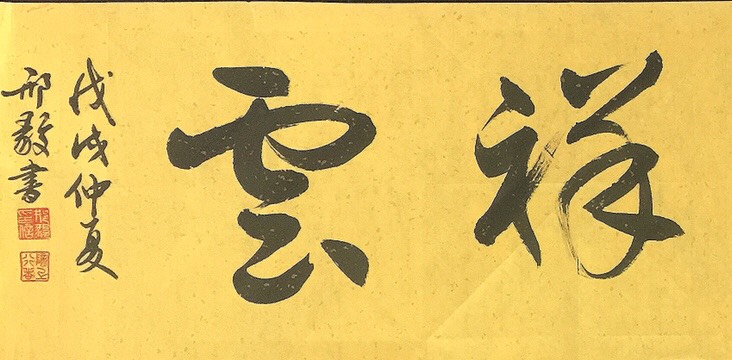 祥雲
戊戌仲夏
邢毅書